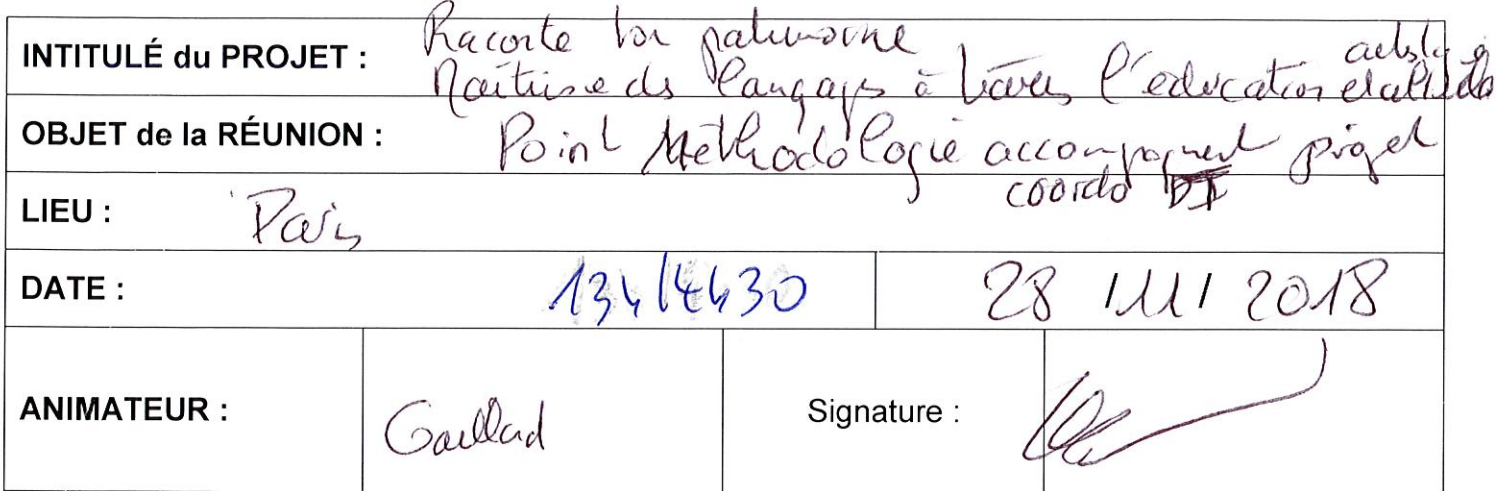 INTITULÉ du PROJET : Raconte ton patrimoine
Maîtrise ds langages à travers l'éducation
OBJET de la RÉUNION : Point Méthodologie accompagnent projet
coordo
LIEU : Paris
DATE : 13h 14h30 28 / 11 / 2018
ANIMATEUR : Gaillard Signature :